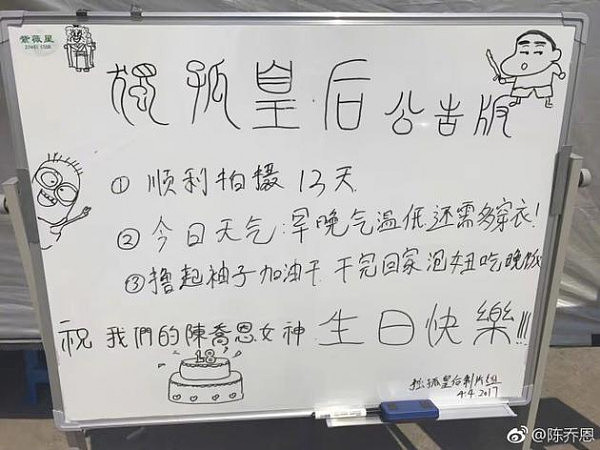 紫薇星
ZIWEI STAR
獨孤皇后 公告版
① 顺利拍摄 13天
② 今日天气:早晚气温低还需多穿衣!
③ 撸起袖子加油干 干完回家泡妞吃晚饭
祝 我們的陳喬恩女神 生日快樂!!!
18
独孤皇后制片组
4.4.2017
@陈乔恩